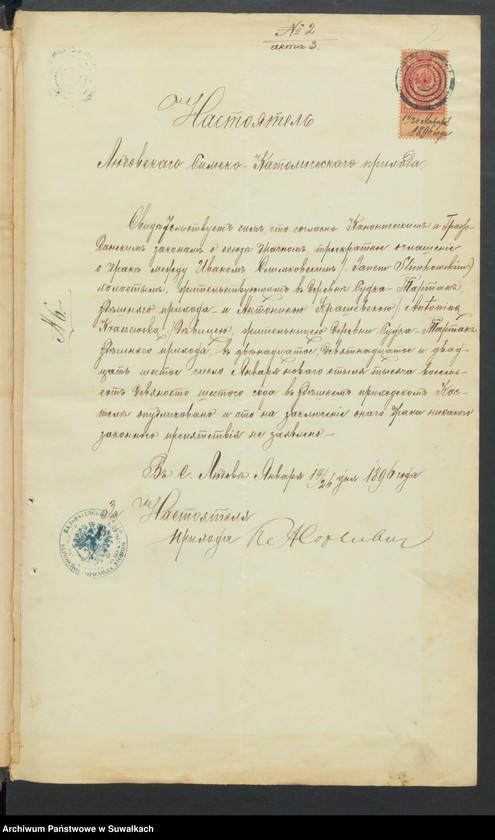 № 2
акта 3.
2
14/26 Января
1896 года
Настоятель
Римско-Католическаго прихода
Свидѣтельствуетъ симъ, что согласно Каноническимъ и Граж-
данскимъ законамъ о союзѣ брачномъ, троекратное оглашеніе
о бракѣ между Иваномъ /: Janem
холостымъ, жительствующимъ въ деревнѣ Рудка-Тартакъ,
здѣшняго прихода - и Антониною Крашевскою /: Antoniną
дѣвицею, жительницею деревни Рудка-Тартакъ
здѣшняго прихода, въ двѣнадцатое, девятнадцатое и двад-
цать шестое число Января новаго стиля тысяча восемь-
сотъ девяносто шестого года въ здѣшнемъ приходскомъ Кос-
телѣ опубликовано и что на заключеніе онаго брака никакого
законного препятствія не заявлено.-
Въ с. Января 14/26 дня 1896 года
За Настоятеля
прихода Кс.
Archiwum Państwowe w Suwałkach